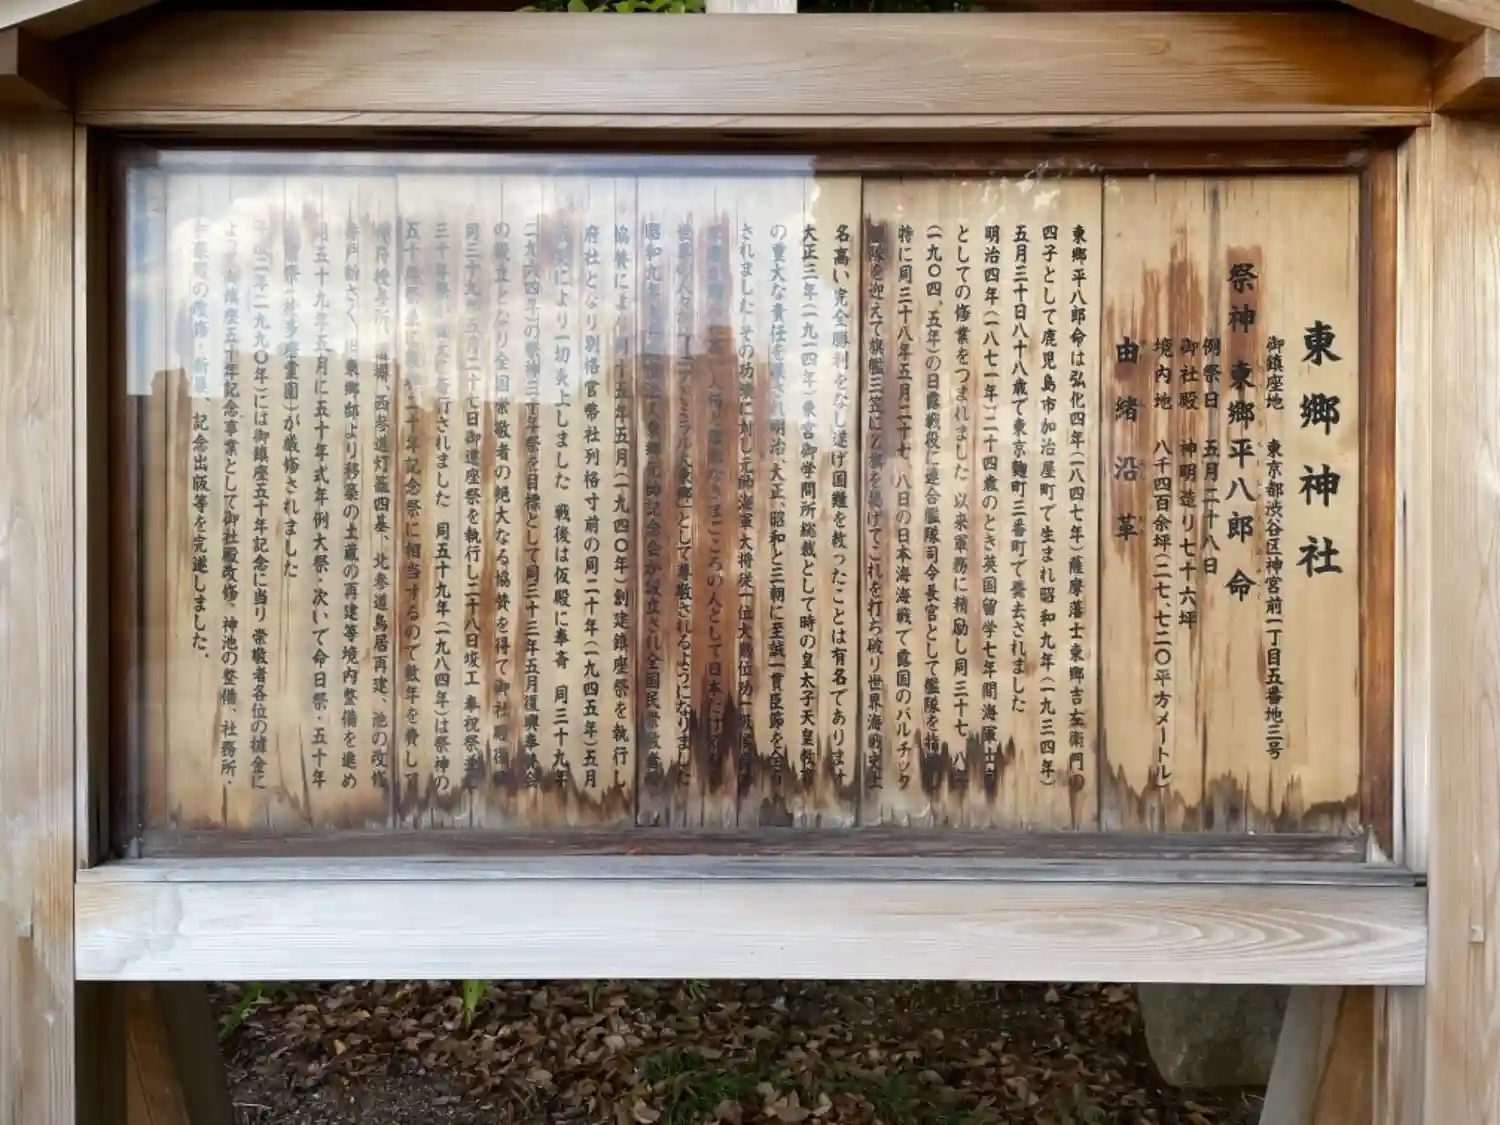 東郷神社
御鎮座地 東京都渋谷区神宮前一丁目五番地三号
祭神 東郷平八郎命
例祭日 五月二十八日
御社殿 神明造り七十六坪
境内地 八千四百余坪(二七、七二〇平方メートル)
由緒沿革
東郷平八郎命は弘化四年(一八四七年)薩摩藩士東郷吉左衛門の
四子として鹿児島市加治屋町で生まれ昭和九年(一九三四年)
五月三十日八十八歳で東京麹町三番町で薨去されました
明治四年(一八七一年)二十四歳のとき英国留学七年間海軍士官
としての修業をつまれました 以来軍務に精励し同三十七、八年
(一九〇四、五年)の日露戦役に連合艦隊司令長官として艦隊を指揮し
特に同三十八年五月二十七、八日の日本海海戦で露国のバルチック
艦隊を迎えて旗艦三笠にZ旗を掲げてこれを打ち破り世界海戦史上
名高い完全勝利をなし遂げ国難を救ったことは有名であります
大正三年(一九一四年)東宮御学問所総裁として時の皇太子天皇教育
の重大な責任を果され明治、大正、昭和と三朝に至誠一貫臣節を全う
されました その功績に対し元帥海軍大将従一位大勲位功一級
まごころの人として日本だけ
東郷」として尊敬されるようになりました
昭和九年 東郷元帥記念会が設立され全国民崇敬
協賛により同十五年五月(一九四〇年)創建鎮座祭を執行し
府社となり別格官幣社列格寸前の同二十年(一九四五年)五月
戦災により一切炎上しました 戦後は仮殿に奉斎 同三十九年
(一九六四年)の祭神三十年祭を目標として同三十三年五月復興奉賛会
の設立となり全国崇敬者の絶大なる協賛を得て御社殿復興
同三十九年五月二十七日御遷座祭を執行し二十八日竣工奉祝祭並に
三十年祭が盛大に斎行されました 同五十九年(一九八四年)は祭神の
五十年祭並に 二十年記念祭に相当するので数年を費して
神札授与所、 西参道灯籠四基、北参道鳥居再建、池の改修
旧東郷邸より移築の土蔵の再建等境内整備を進め
同五十九年五月に五十年式年例大祭・次いで命日祭・五十年
(於多磨霊園)が厳修されました
二年(一九九〇年)には御鎮座五十年記念に当り崇敬者各位の献金に
よって御鎮座五十年記念事業として御社殿改修、神池の整備、社務所・
の改修・新築、記念出版等を完遂しました。